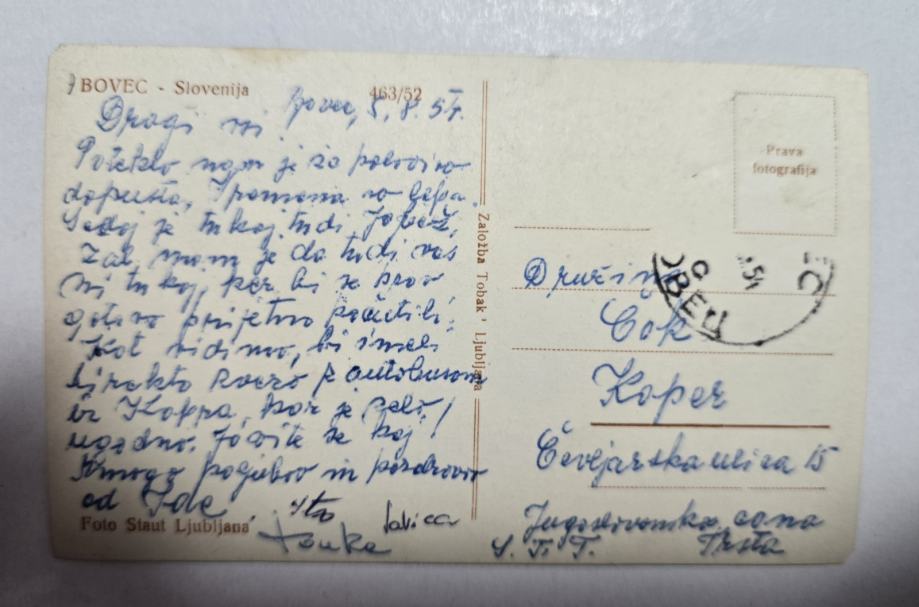 BOVEC - Slovenija 463/52
Bovec, 5. 8. 54.
Dragi vsi
Poteklo nam je že polovico
dopusta. Spomena
Sedaj je tukaj tudi
Žal nam je da tudi vas
ni tukaj, ker bi se prav
gotovo prijetno počutili.
Kot vidimo, bi imeli
direkto zvezo z autobusom
iz Kopra, kar je zelo
ugodno. Javite se kaj!
Mnogo poljubov in pozdravov
od Ide
Foto Staut Ljubljana
Založba Tobak' Ljubljana
Prava
fotografija
54
Družina
Čok
Koper
Čevljarska ulica 15
Jugoslovanska cona
S. T. T. Trsta